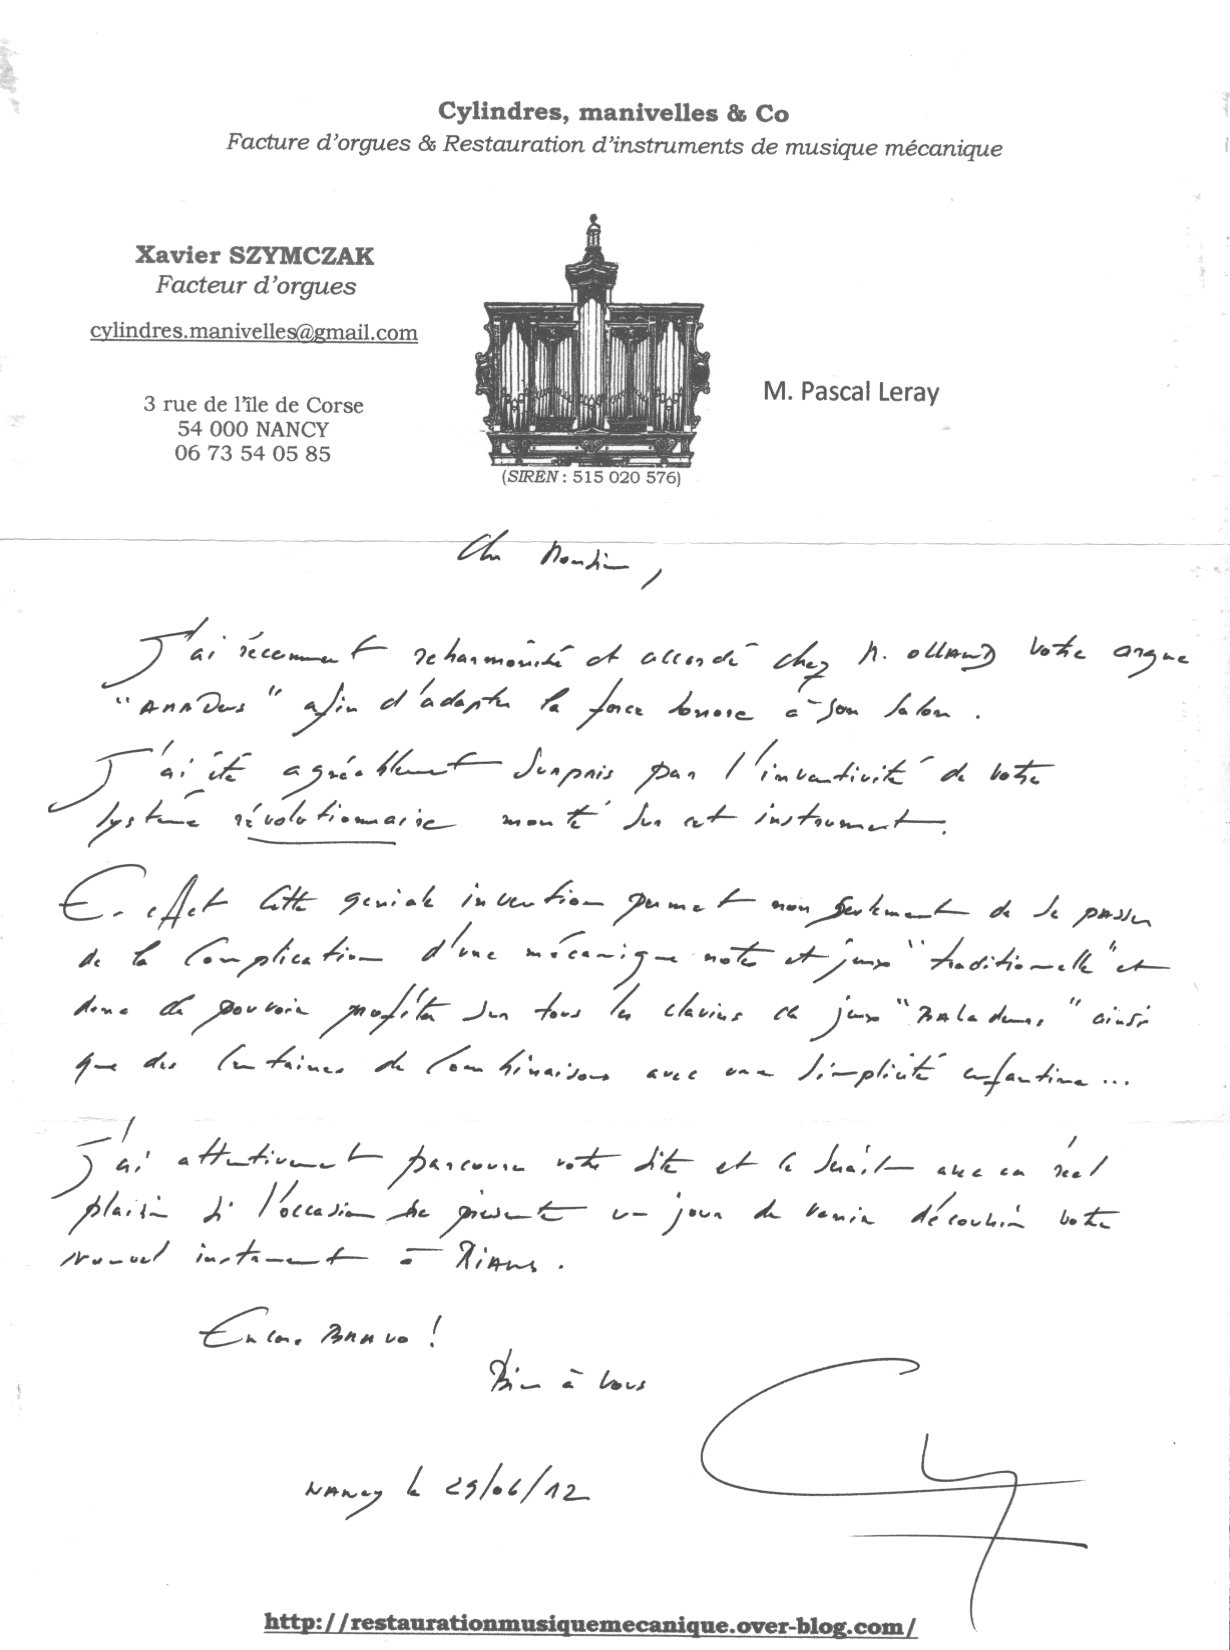 Cylindres, manivelles & Co
Facture d'orgues & Restauration d'instruments de musique mécanique
Xavier SZYMCZAK
Facteur d'orgues
cylindres.manivelles@gmail.com
3 rue de l'île de Corse
54 000 NANCY
06 73 54 05 85
(SIREN : 515 020 576)
M. Pascal Leray
Cher Monsieur,
J'ai récemment reharmonisé et accordé chez M. OLLAND votre orgue
"AMADeus" afin d'adapter la force sonore à son salon.
J'ai été agréablement surpris par l'inventivité de votre
système révolutionnaire monté sur cet instrument.
En effet cette geniale invention permet non seulement de se passer
de la complication d'une mécanique notes et jeux "traditionnelle" et
donc de pouvoir profiter sur tous les claviers de jeux "BALadeurs" ainsi
que des centaines de combinaisons avec une simplicité enfantine...
J'ai attentivement parcouru votre site et ce serait avec un réel
plaisir si l'occasion se présente un jour de venir découvrir votre
nouvel instrument à RIANS.
Encore BRAVO !
Bien à vous
NANCy le 29/06/12
http://restaurationmusiquemecanique.over-blog.com/